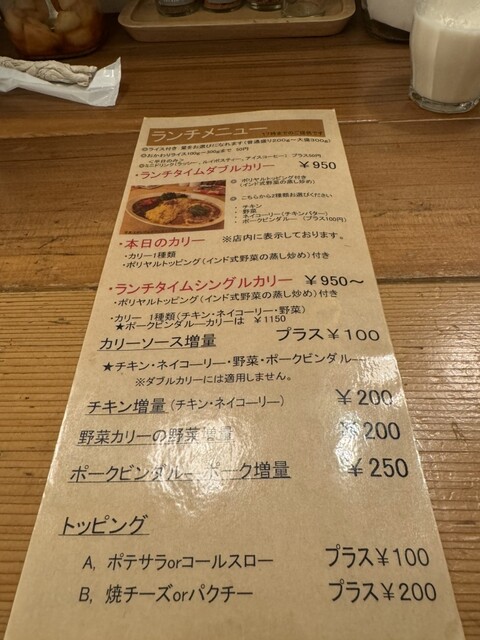 ランチメニュー
◎ライス付き 量をお選びになれます(普通盛り200g~大盛300g)
◎おかわりライス100g~300gまで 50円
<平日のみ>
ルイボスティー、アイスコーヒー) プラス50円
・ランチタイムダブルカリー ￥950
◎ ポリヤルトッピング付き
(インド式野菜の蒸し炒め)
◎ こちらから2種類お選びください
・ チキン
・ 野菜
・ ネイコーリー(チキンバター)
・ ポークビンダルー (プラス100円)
・本日のカリー ※店内に表示しております。
・カリー1種類
・ポリヤルトッピング(インド式野菜の蒸し炒め)付き
・ランチタイムシングルカリー ￥950~
・ポリヤルトッピング(インド式野菜の蒸し炒め)付き
・カリー 1種類(チキン・ネイコーリー・野菜)
★ポークビンダルーカリーは ￥1150
カリーソース増量 プラス￥100
★チキン・ネイコーリー・野菜・ポークビンダルー
※ダブルカリーには適用しません。
チキン増量(チキン・ネイコーリー) ￥200
野菜カリーの野菜増量 ￥200
ポークビンダルー ポーク増量 ￥250
トッピング
A, ポテサラorコールスロー プラス￥100
B, 焼チーズorパクチー プラス￥200